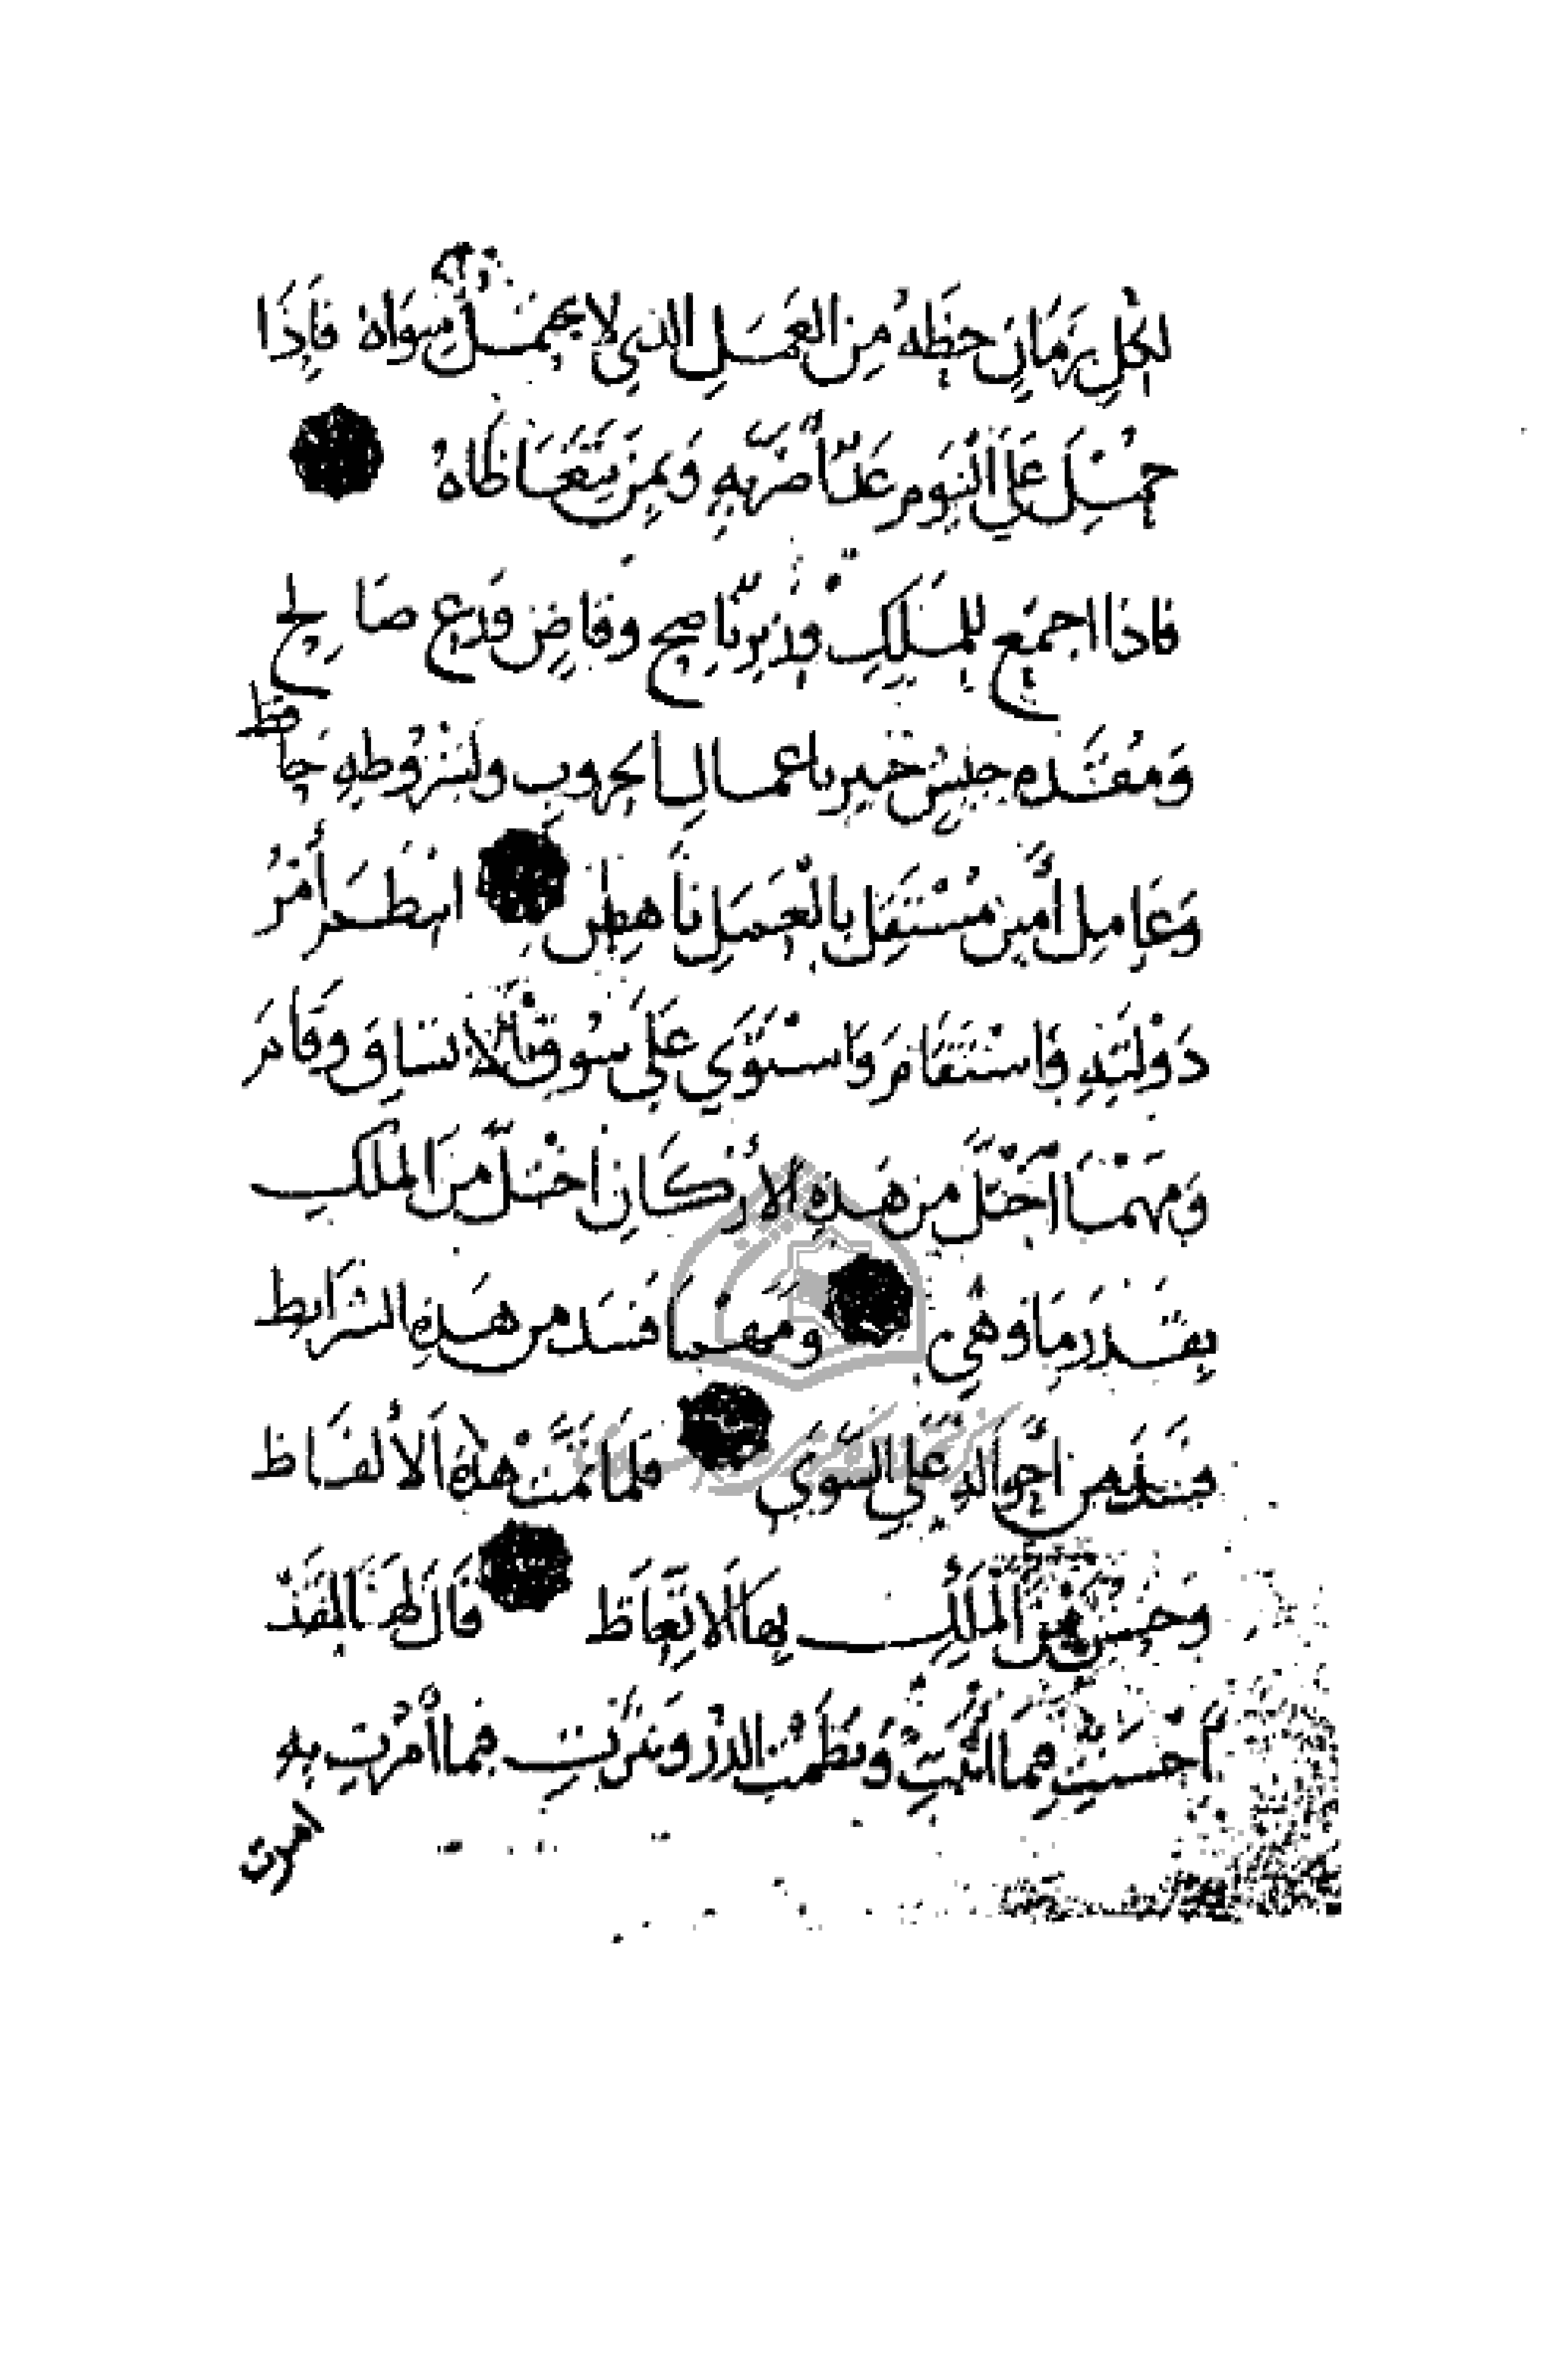 لِكُلِّ زَمَانٍ حَظُّهُ مِنَ العَمَلِ الذي لا يحمل سِوَاهُ فَإِذَا
حُمِلَ عَلَى اليَومِ غدًا أَضَرَّ بِهِ وَبِمَن يَتَعَاطَاهُ
فاذا اجتمع للملك وزير ناصح وقاضٍ وَرِع صَالح
وَمُقَدم جيش خبير باعمال الحروب ولشروطه حافظ
وَعَامِل أَمين مُسْتَقِل بالْعَمَلِ نَاهِض انتظم أَمْرُ
دَوْلَتِهِ وَاسْتَقَامَ وَاسْتَوَى عَلَى سُوقِ الاتساق وَقَامَ
وَمَهْمَا اخْتَلَّ مِن هَذِهِ الأَركَانِ اخْتَلَّ مِنَ المَلك
بِقَدَرِ مَا وهي وَمَهما فَسَد من هَذِهِ الشرَايط
فسد من احوالهِ عَلى السَّوَى فلما تَمَّتْ هذه الألفَاظ
وَحَسُنَ مِنَ المَلِكِ بِهَا الاتِّعَاظ قَالَ لَهَا لَقَدْ
أَحْسَنْتِ فِمَا أَلَّفْتِ وَنَظَمْتِ الدُّرَ وَنَثَرْتِ فيما أمرتِ بِهِ
امرت